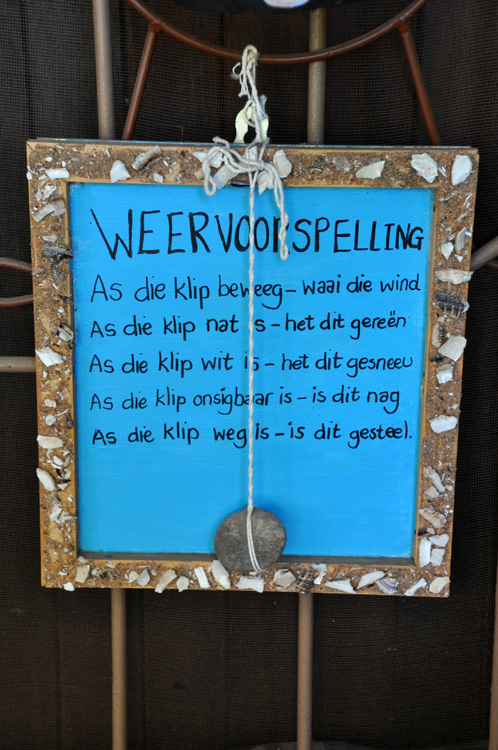 WEERVOORSPELLING
As die klip beweeg – waai die wind
As die klip nat is – het dit gereën
As die klip wit is – het dit gesneeu
As die klip onsigbaar is – is dit nag
As die klip weg is – is dit gesteel.